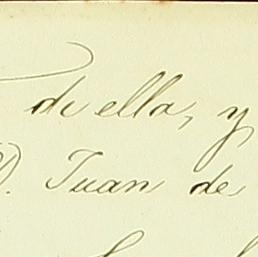 de ella, y
D. Juan de